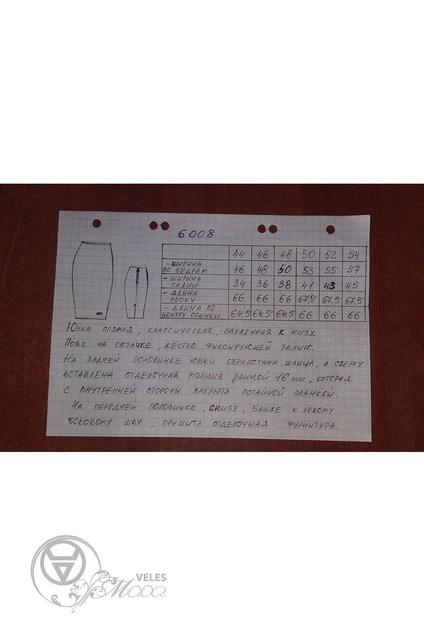 6008
44 46 48 50 52 54
- ШИРИНА ПО БЕДРАМ 46 48 50 53 55 57
- ШИРИНА ТАЛИИ 34 36 38 41 43 45
- ДЛИНА СБОКУ 66 66 66 67,5 67,5 67,5
- ДЛИНА ПО ЦЕНТРУ СПИНКИ 64,5 64,5 64,5 66 66 66
ЮБКА ПРЯМАЯ, КЛАССИЧЕСКАЯ, ЗАУЖЕННАЯ К НИЗУ.
ПОЯС НА ОБТАЧКЕ, ЖЁСТКО ФИКСИРУЮЩЕЙ ТАЛИЮ.
НА ЗАДНЕЙ ПОЛОВИНКЕ ЮБКИ ОБРАБОТАНА ШЛИЦА, А СВЕРХУ
ВСТАВЛЕНА ОТДЕЛОЧНАЯ МОЛНИЯ ДЛИНОЙ 16 см, КОТОРАЯ
С ВНУТРЕННЕЙ СТОРОНЫ ЗАКРЫТА ПОТАЙНОЙ ПЛАНКОЙ.
НА ПЕРЕДНЕЙ ПОЛОВИНКЕ, СНИЗУ, БЛИЖЕ К ЛЕВОМУ
БОКОВОМУ ШВУ, ПРИШИТА ОТДЕЛОЧНАЯ ФУРНИТУРА.
VELES
Мода